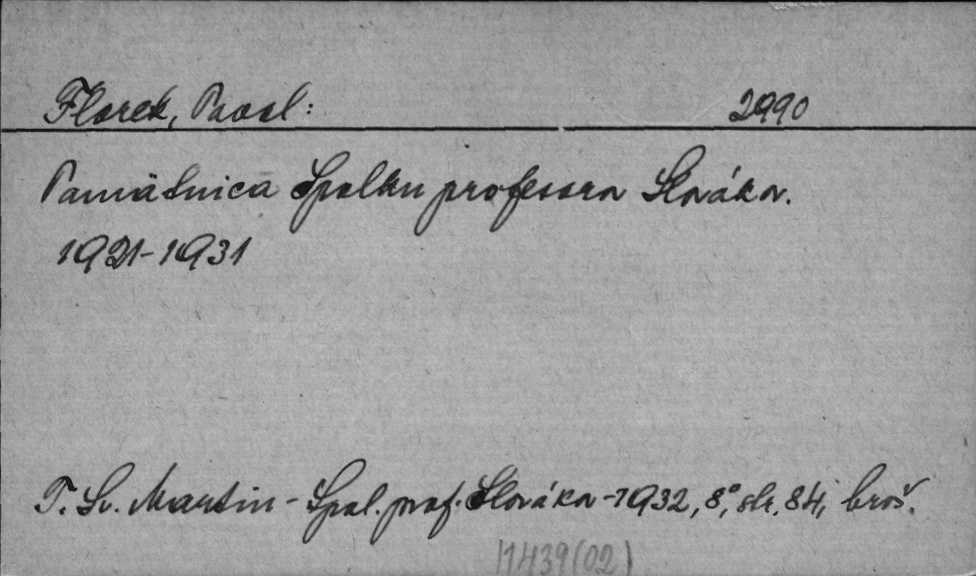 Florek, Pavol: 2990
Pamätnica Spolku professorov Slovákov.
1921-1931
T. Sv. Martin - Spol. prof. Slovákov - 1932, 8°, str. 84, brož.
17439(02)